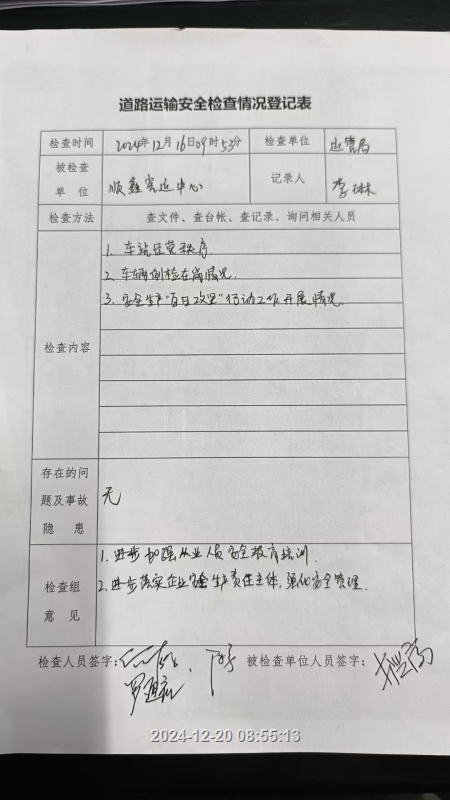 道路运输安全检查情况登记表
检查时间 2024年12月16日09时53分 检查单位 运管局
被检查
单位 顺鑫客运中心 记录人 李琳
检查方法 查文件、查台帐、查记录、询问相关人员
1. 车站经营秩序
2. 车辆例检在岗情况.
3. 安全生产"百日攻坚"行动工作开展情况.
检查内容
存在的问
题及事故
隐患
无
1. 进步加强从业人员安全教育培训.
2. 进步落实企业安全生产责任主体，强化安全管理.
检查组
意见
检查人员签字： 被检查单位人员签字：
2024-12-20 08:55:13